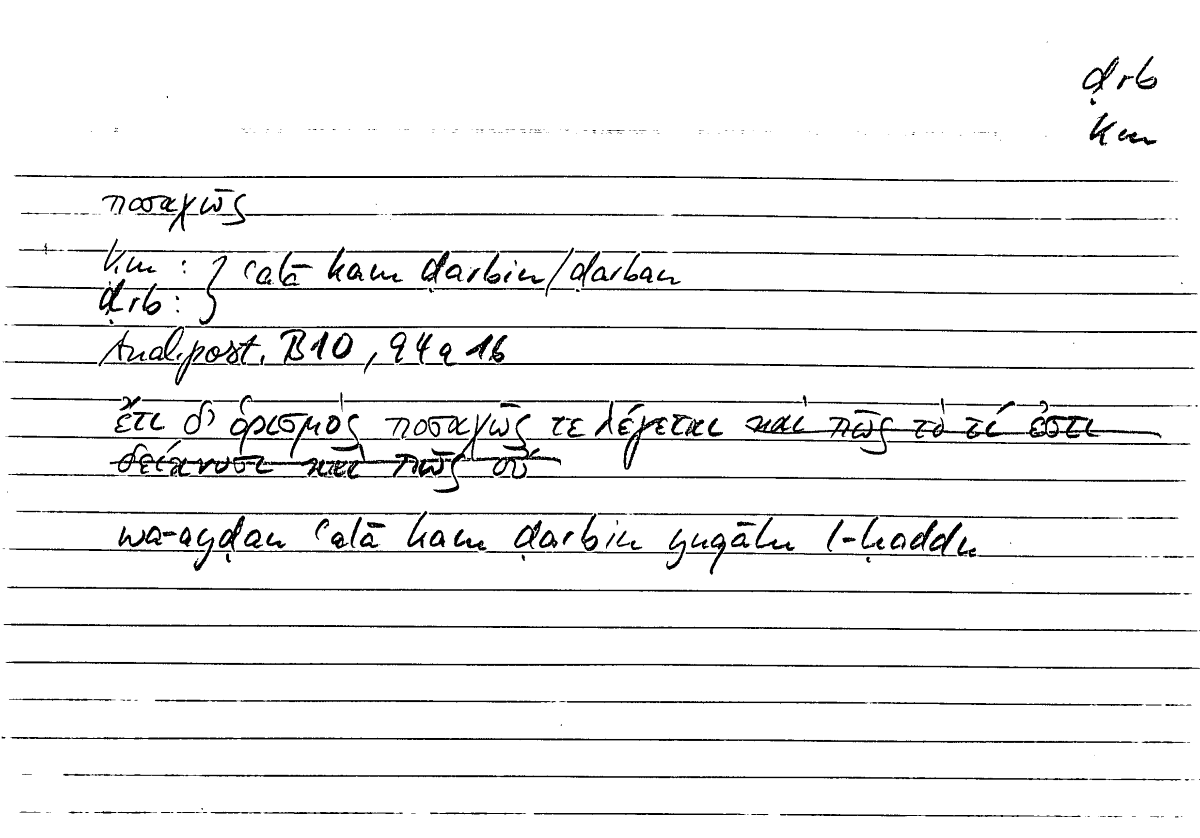 ḍrb
km
ποσαχῶς
km :
ḍrb : } ʿalā kam ḍarbin/ḍarban
Anal.post. B10, 94a16
ἔτι δ' ὁρισμὸς ποσαχῶς τε λέγεται καὶ πῶς τὸ τί ἐστι
δείκνυσι καὶ πῶς οὔ
wa-ayḍan ʿalā kam ḍarbin yuqālu l-ḥaddu